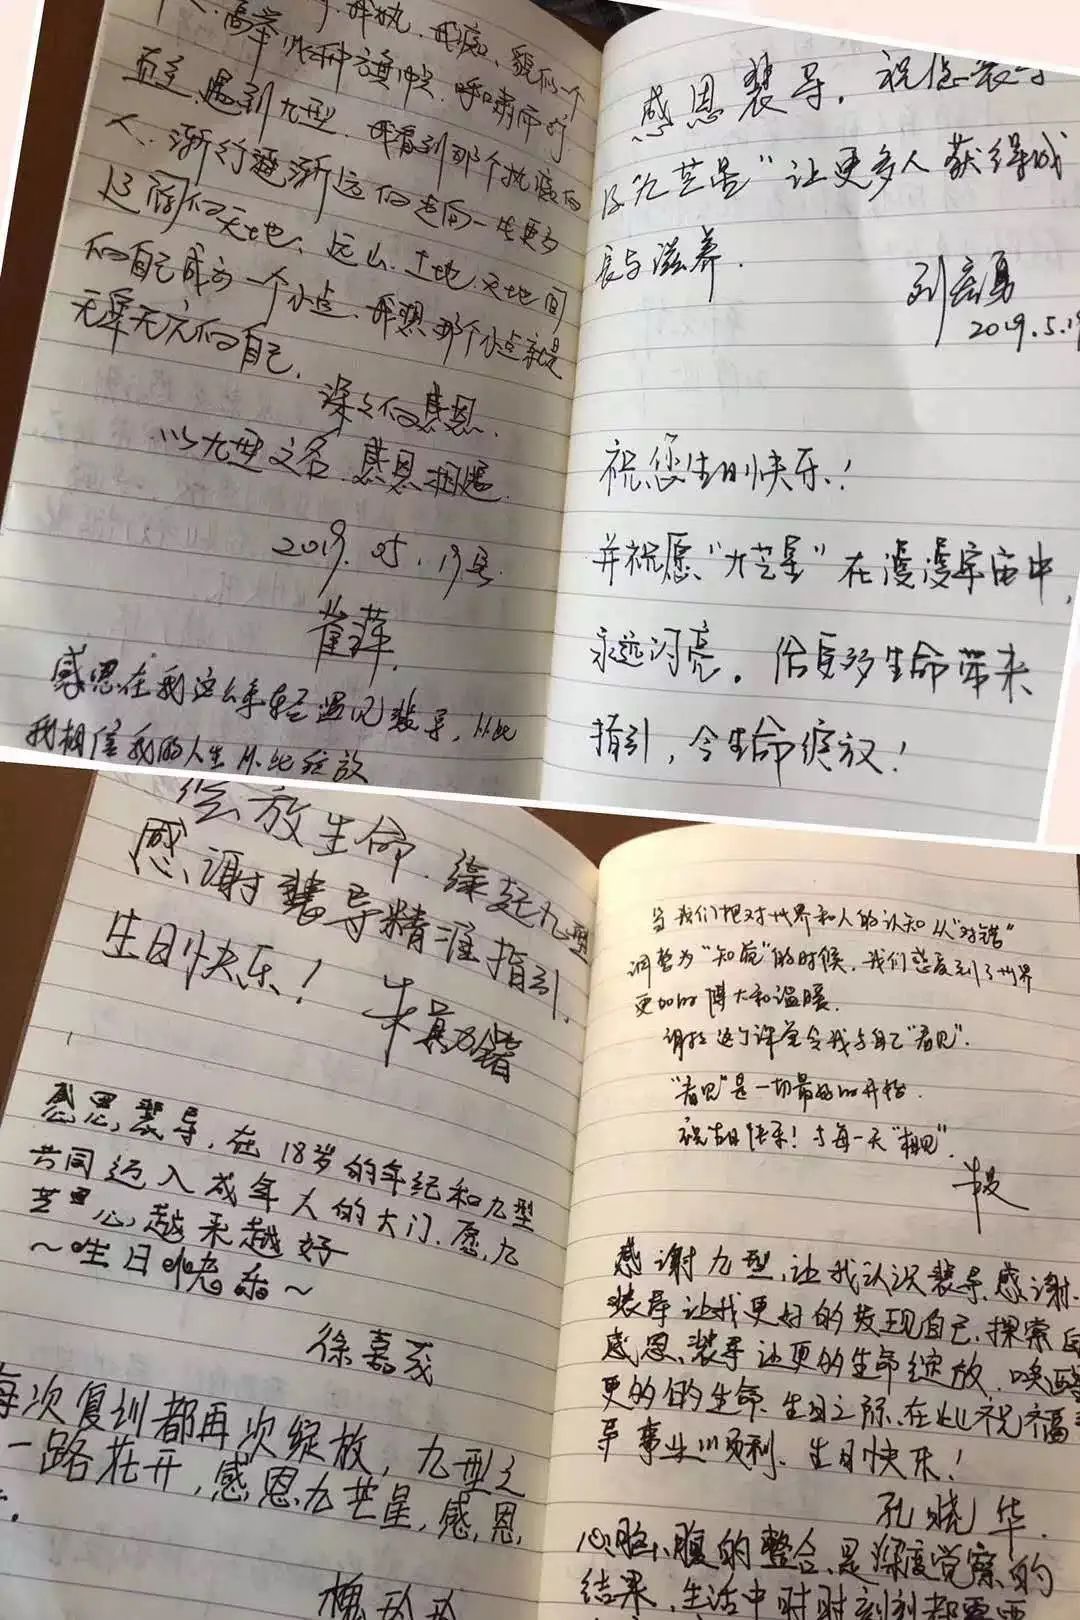 我执、我痴、貌似一个
高举
直立、遇到九型、我看到那个执痴的
人、渐行渐远的走向一生更多
辽阔的天地、远山、土地、天地间
的自己成为一个小点、我想那个小点就是
无穷无尽的自己.
深深的感恩.
以九型之名、感恩相遇.
2019.05.19号
崔萍.
感恩在我这么年轻遇见裴导，从此
我相信我的人生从此绽放
感恩裴导，祝福裴导
及“九芒星”让更多人获得成
长与滋养.
2019.5.19
祝您生日快乐！
并祝愿“九芒星”在漫漫宇宙中，
永远闪亮。给更多生命带来
指引，令生命绽放！
绽放生命.缘起九型
感谢裴导精准指引.
生日快乐！
感恩裴导，在18岁的年纪和九型
共同迈入成年人的大门.愿九
芒星心越来越好
～生日快乐～
徐嘉茂
每次复训都再次绽放，九型之
一路花开，感恩九芒星，感恩
当我们把对世界和人的认知从“对错”
调整为“知觉”的时候，我们感受到了世界
更加的博大和温暖.
谢谢这个课堂令我与自己“看见”.
“看见”是一切最好的开始.
祝生日快乐！与每一天“相见”.
感谢九型，让我认识裴导.感谢
裴导让我更好的发现自己.探索自
感恩裴导让更的生命绽放.唤醒
更的的生命.生日之际.在此祝福
导事业顺利.生日快乐！
孔晓华.
心、脑、腹的整合是深度觉察的
结果.生活中时时刻刻都要